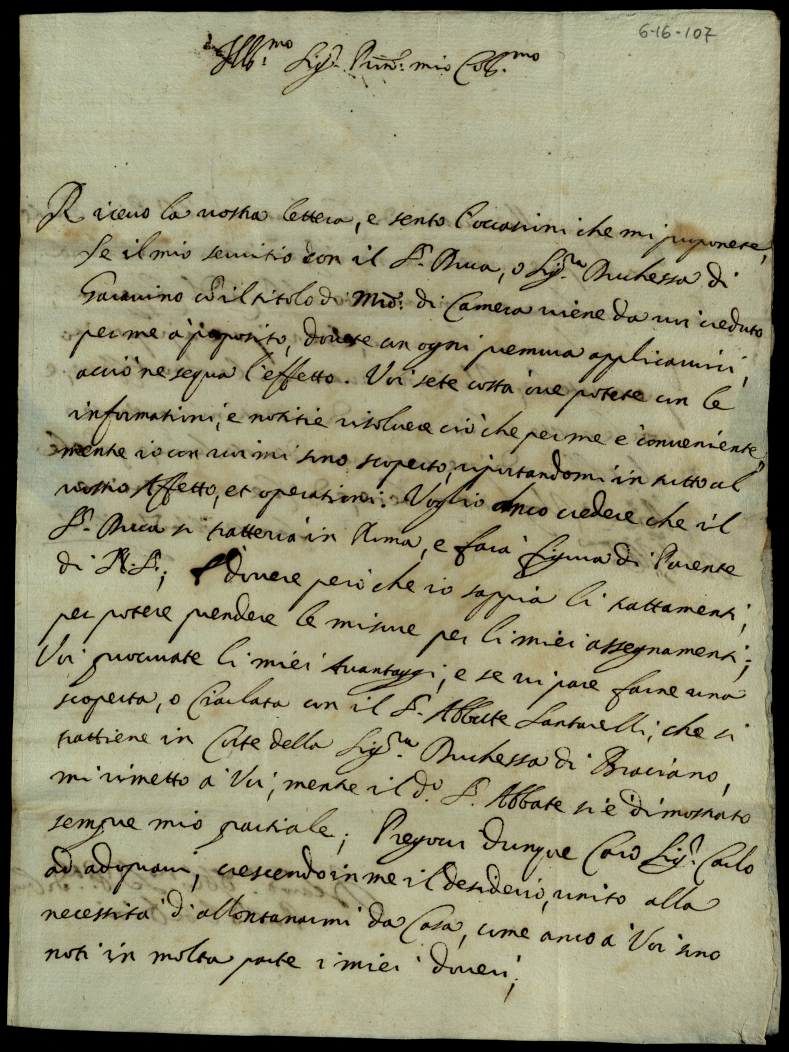 6-16-107
Ill.mo Sig.r Pnr̃: mio Col.mo
Riceuo la vostra lettera, e sento l'occasioni che mi proponete,
Se il mio seruitio con il S.r Duca, o Sig.ra Duchessa di
Grauino cõ il titolo di di Camera viene da voi creduto
per me à proposito, douete con ogni premura applicaruici,
acciò ne segua l'effetto. Voi sete costà oue potete con le
informationi, e notitie risoluere ciò che per me è conueniente,
mentre io con voi mi sono scoperto, riportandomi in tutto al
vostro Affetto, et operationi. Voglio anco credere che il
S.r Duca si tratterrà in Roma, e farà figura di Parente
di N. S.; è douere però che io sappia li trattamenti,
per potere prendere le misure per li miei assegnamenti;
Voi procurate li miei Auantaggi, e se vi pare farne una
scoperta, o Ciarlata con il S.r Abbate Santarelli, che si
trattiene in Corte della Sig.ra Duchessa di Braciano,
mi rimetto à Voi, mentre il d.o S.r Abbate si è dimostrato
sempre mio partiale; Pregoui dunque Caro Sig.r Carlo
ad adoprarui, crescendo in me il desiderio, unito alla
necessità d'allontanarmi da Casa, come anco à Voi sono
noti in molta parte i miei doueri;